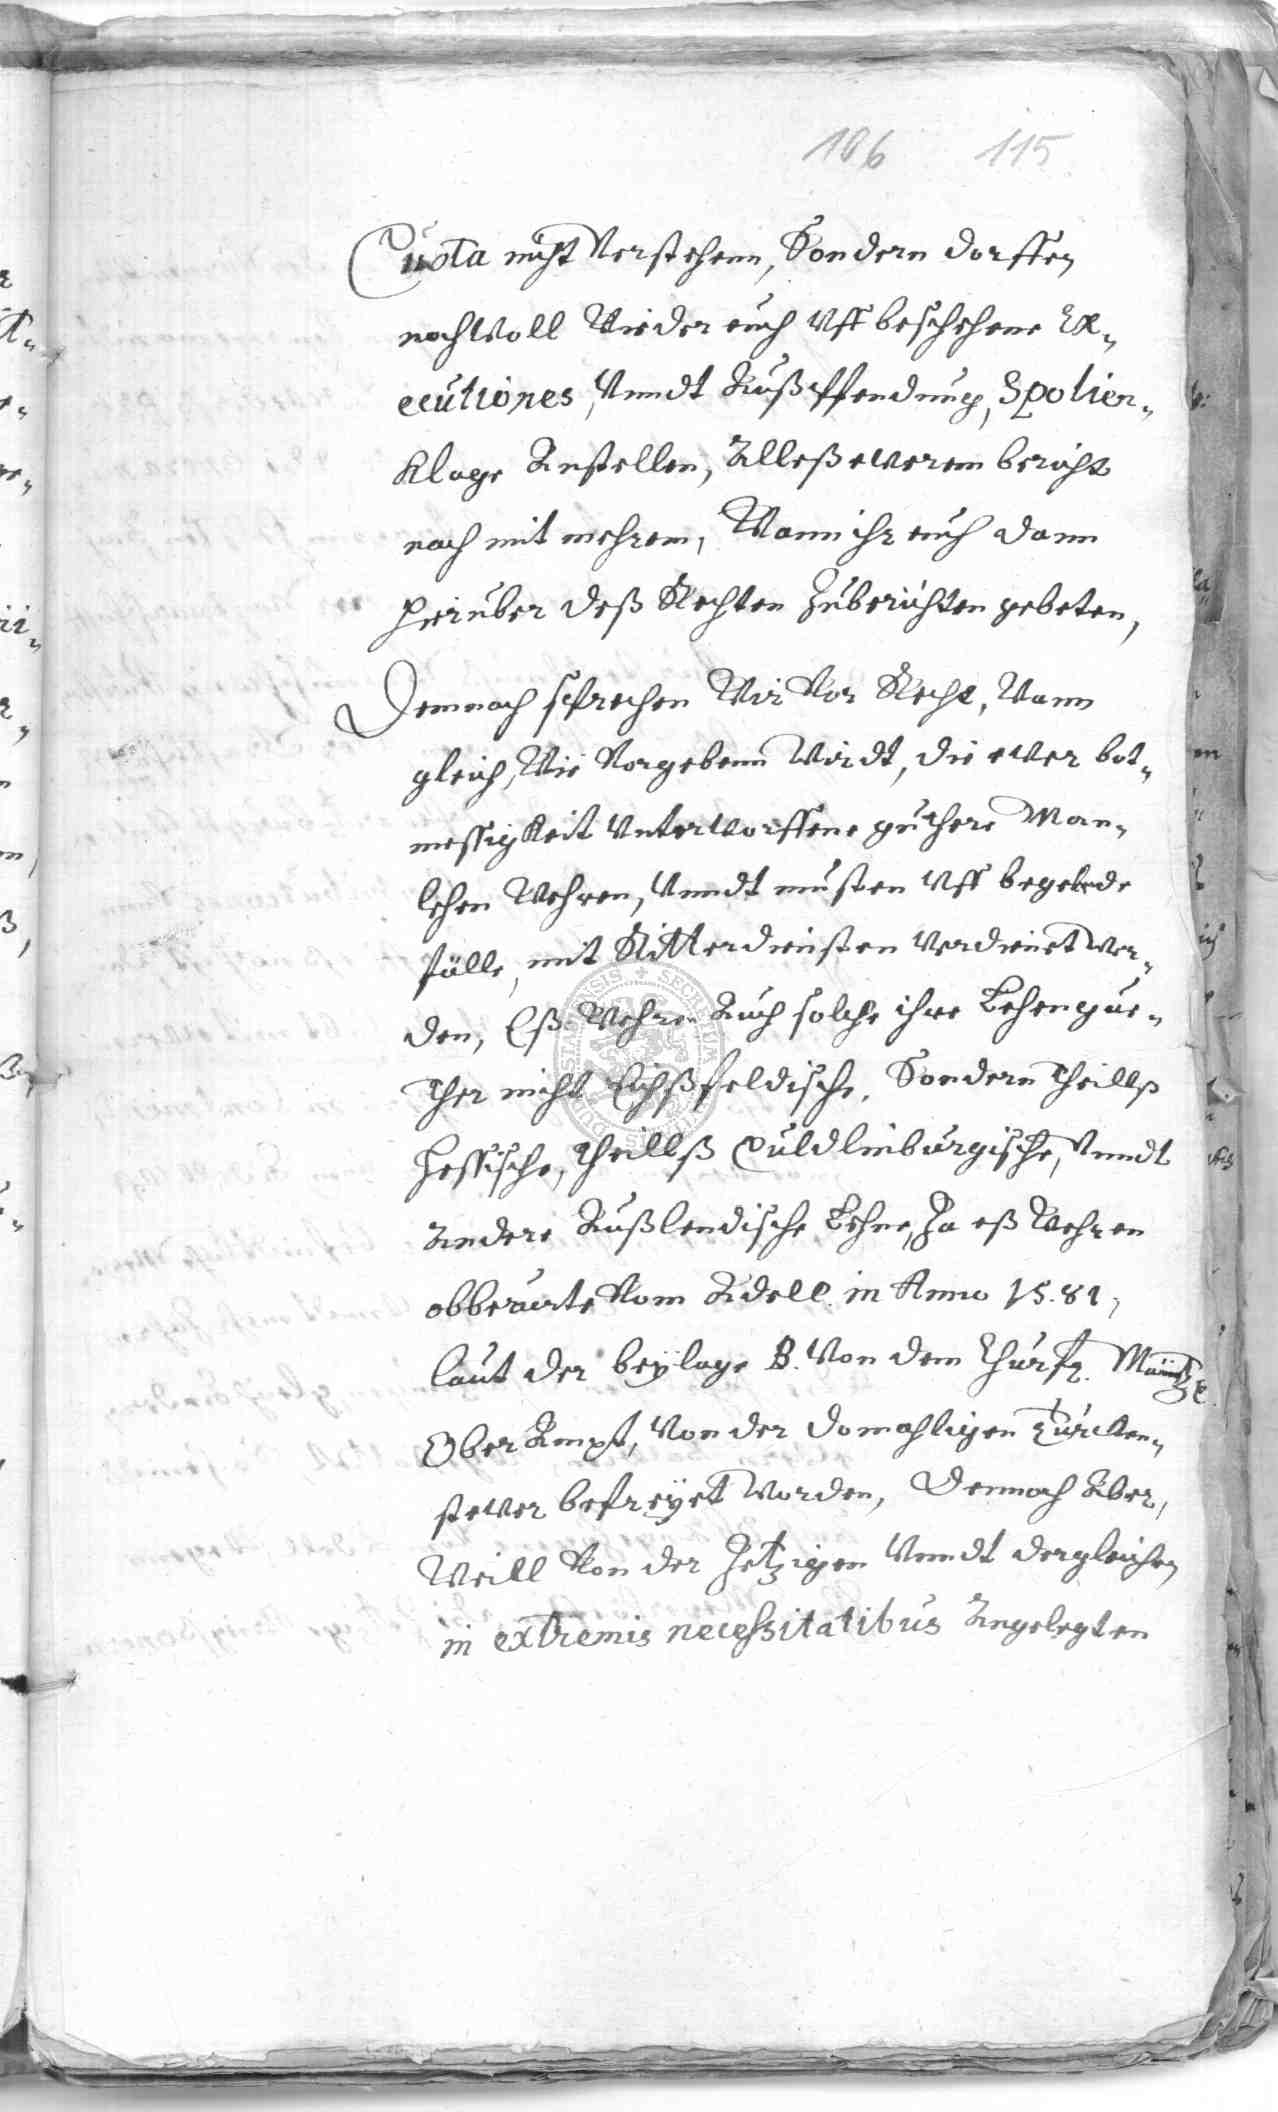 106 115
Quota nicht Verstehenn, Sondern dorffen
nochwoll Wieder euch Vff beschehene Ex„
ecutiones, Vnndt Außpffendung, Spolien„
Klage Anstellen, Alleß ewerem bericht
nach mit mehrem, Wann ihr euch dann
hieruber deß Rechten Zuberichten gebeten,
Demnach sprechen Wir Vor Recht, Wann
gleich, Wie Vorgebenn Wirdt, die ewer bot„
messigkeit Vnterworffene guthere Man„
lehen Wehren, Vnndt musten Vff begebede
fälle, mit Ritterdiensten Verdienet wer„
den, Eß Wehre Auch solche ihre Lehengue„
ther nicht Eichßfeldische, Sondern Theillß
Hessische, Theillß Quldlinburgische, Vnndt
Andere Außlendische Lehne, Ja eß Wehren
obberurte Vom Adell. in Anno 15.81,
laut der beylage B. Von dem Churf. Maintz
Ober Ampt, Von der domahligen Türcken„
stewer befreyet worden, Dennoch Aber,
Weill Von der Jetzigen Vnndt dergleichen
in extremis necessitatibus Angelegten